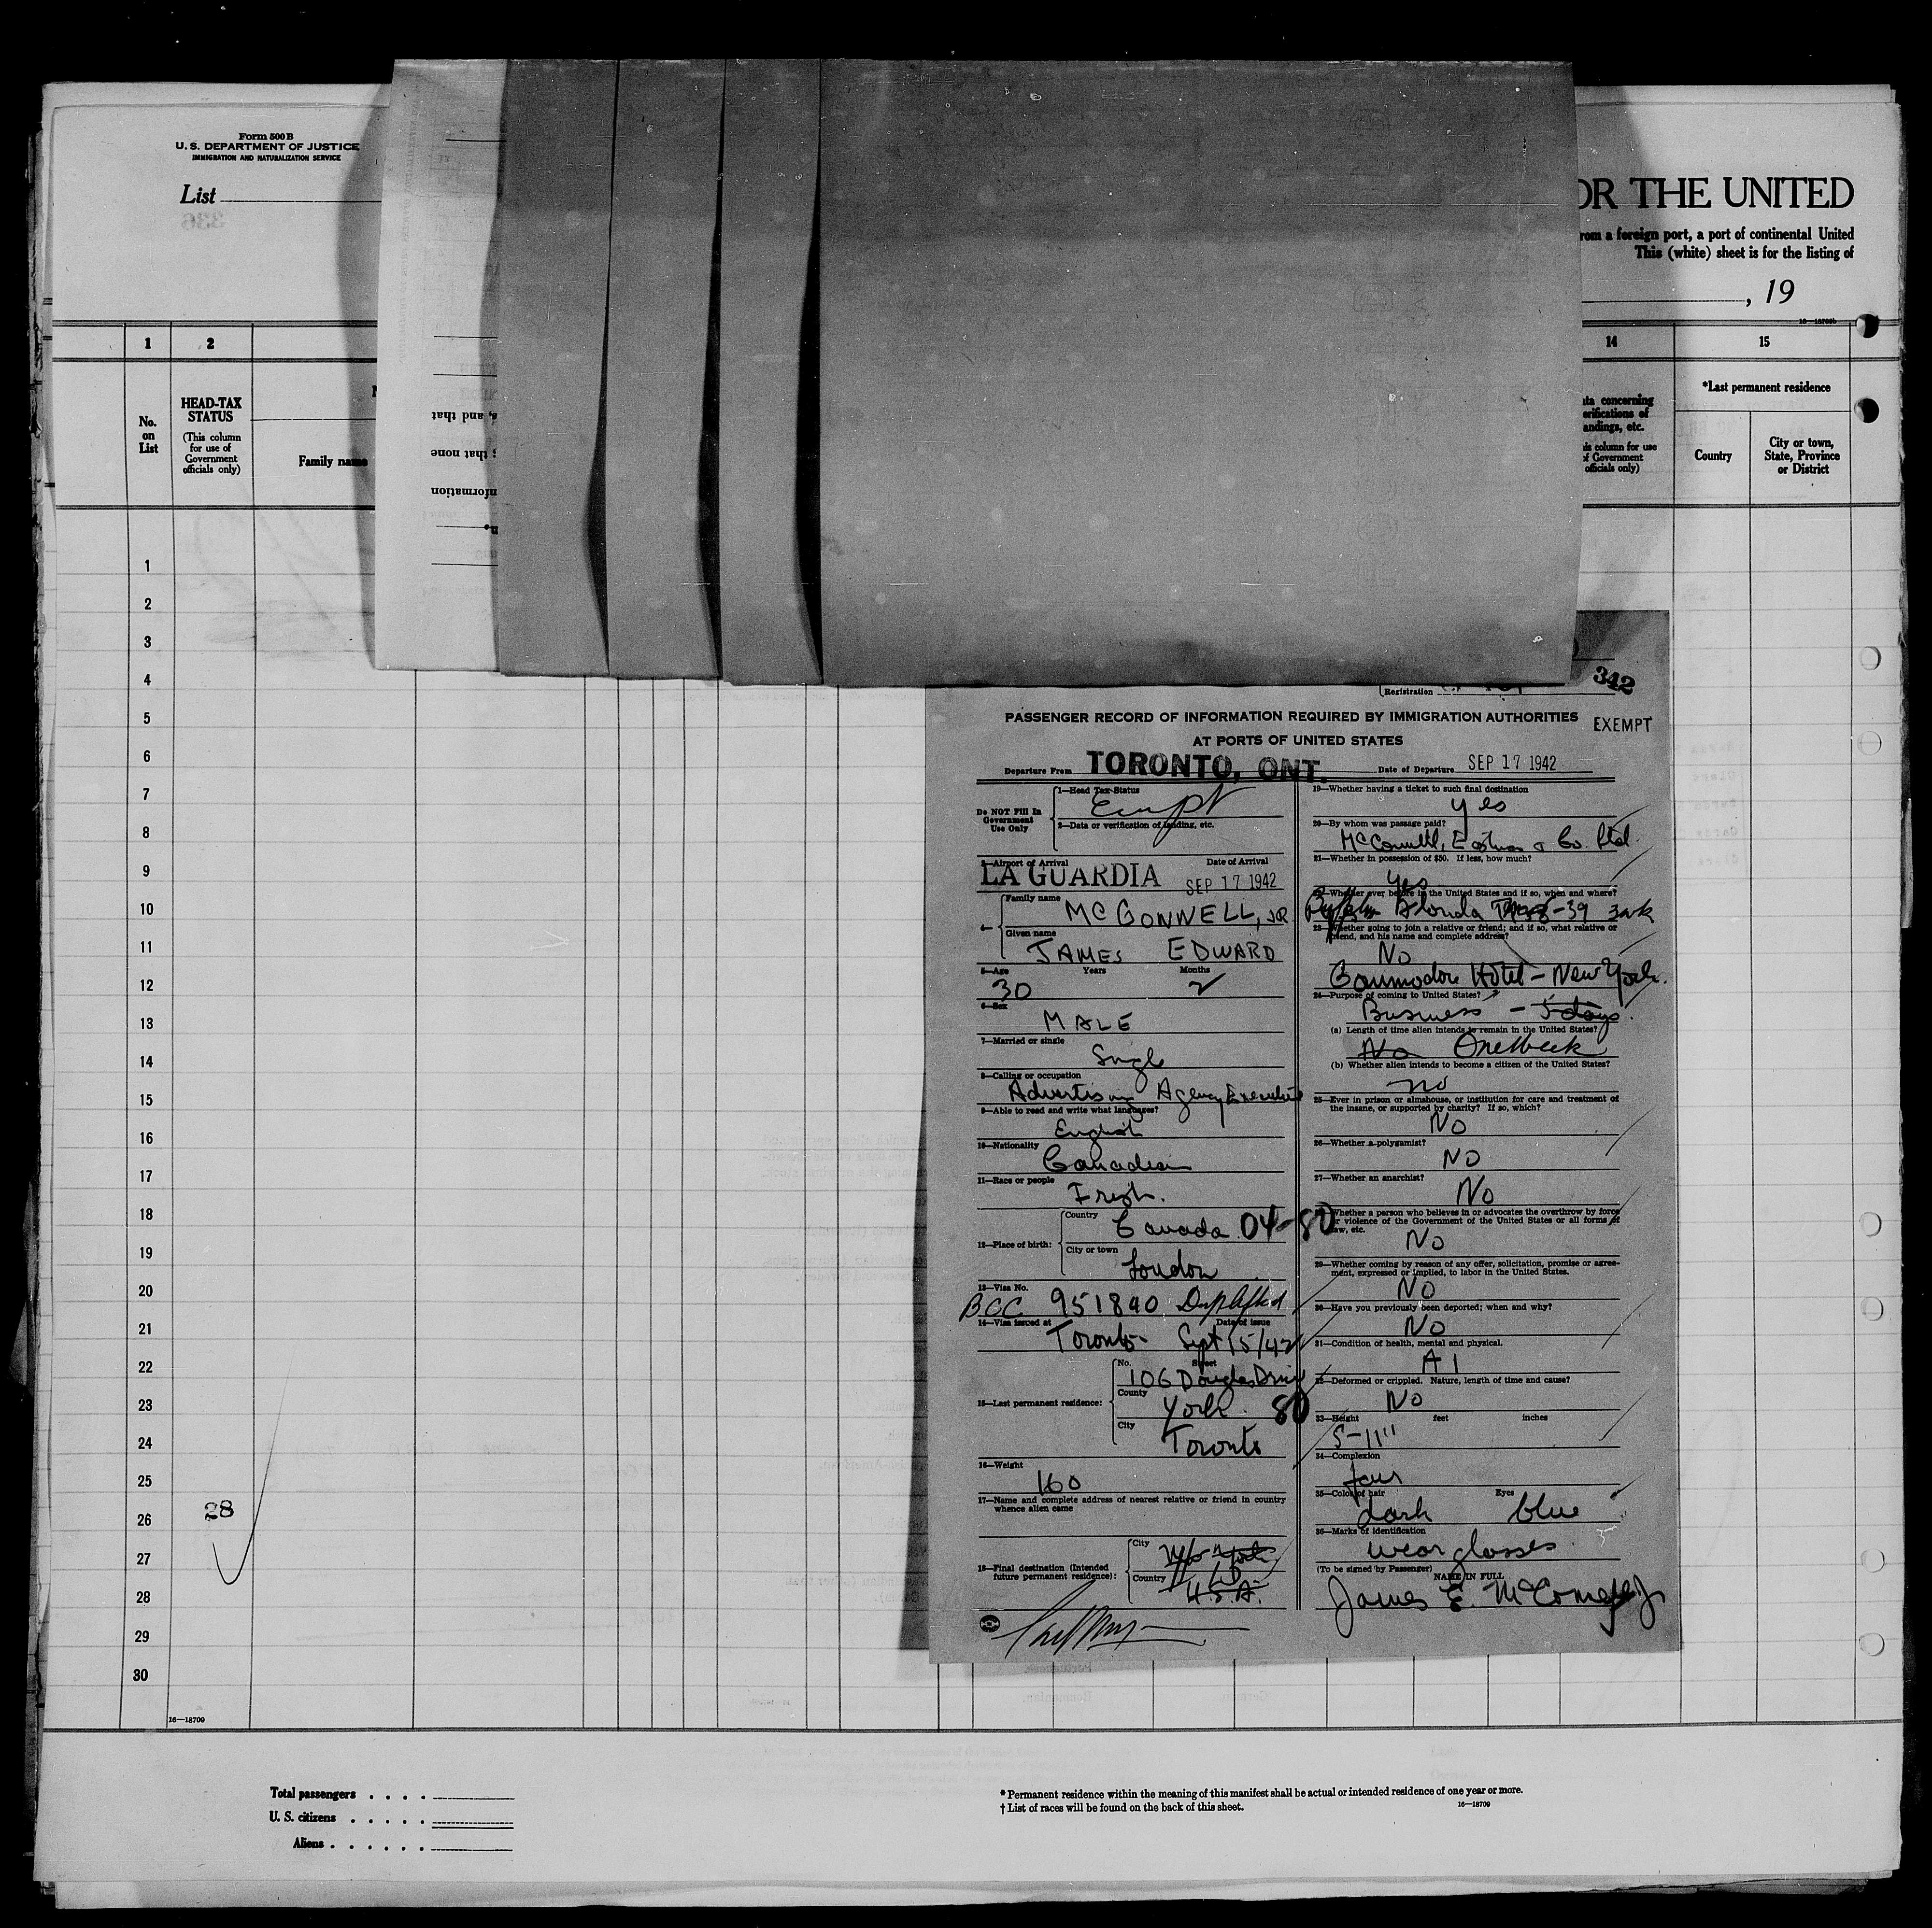 Form 500 B
U. S. DEPARTMENT OF JUSTICE
IMMIGRATION AND NATURALIZATION SERVICE
List
336
OR THE UNITED
rom a foreign port, a port of continental United
This (white) sheet is for the listing of
, 19
1 2 14 15
No. on List
HEAD-TAX STATUS
(This column for use of Government officials only)
Family name
ata concerning
erifications of
andings, etc.
is column for use
of Government
officials only)
*Last permanent residence
Country
City or town, State, Province or District
s, and that
; that none
nformation
1
2
3
4
5
6
7
8
9
10
11
12
13
14
15
16
17
18
19
20
21
22
23
24
25
26
27
28
29
30
28
16—18709
Registration
342
PASSENGER RECORD OF INFORMATION REQUIRED BY IMMIGRATION AUTHORITIES
EXEMPT
AT PORTS OF UNITED STATES
Departure From TORONTO, ONT. Date of Departure SEP 17 1942
Do NOT Fill In Government Use Only
1—Head Tax Status
2—Data or verification of landing, etc.
3—Airport of Arrival Date of Arrival
LA GUARDIA SEP 17 1942
4— Family name MCCONNELL, JR.
Given name JAMES EDWARD
5—Age Years Months
30 2
6—Sex
MALE
7—Married or single
Single
8—Calling or occupation
Advertising Agency Executive
9—Able to read and write what languages?
English
10—Nationality
Canadian
11—Race or people
Irish.
12—Place of birth: Country Canada 04-80
City or town London
13—Visa No.
BCC 951890
14—Visa issued at Date of issue
Toronto - Sept 15/42
15—Last permanent residence: No. Street
106 Douglas Drive
County York 80
City Toronto
16—Weight
160
17—Name and complete address of nearest relative or friend in country whence alien came
18—Final destination (Intended future permanent residence): City
Country U.S.A.
19—Whether having a ticket to such final destination
yes
20—By whom was passage paid?
McConnell, Eastman & Co. Ltd.
21—Whether in possession of $50. If less, how much?
yes
22—Whether ever before in the United States and if so, when and where?
Florida 1938-39
23—Whether going to join a relative or friend; and if so, what relative or friend, and his name and complete address?
No
Commodore Hotel - New York.
24—Purpose of coming to United States?
Business - 5 days.
(a) Length of time alien intends to remain in the United States?
No One Week
(b) Whether alien intends to become a citizen of the United States?
no
25—Ever in prison or almshouse, or institution for care and treatment of the insane, or supported by charity? If so, which?
No
26—Whether a polygamist?
No
27—Whether an anarchist?
No
Whether a person who believes in or advocates the overthrow by force or violence of the Government of the United States or all forms of law, etc.
No
29—Whether coming by reason of any offer, solicitation, promise or agreement, expressed or implied, to labor in the United States.
No
30—Have you previously been deported; when and why?
No
31—Condition of health, mental and physical.
A1
32—Deformed or crippled. Nature, length of time and cause?
No
33—Height feet inches
5-11"
34—Complexion
fair
35—Color of hair Eyes
dark blue
36—Marks of identification
wear glasses
(To be signed by Passenger)
NAME IN FULL
James E. McConnell Jr
Total passengers . . . .
U. S. citizens . . . . .
Aliens . . . . . .
* Permanent residence within the meaning of this manifest shall be actual or intended residence of one year or more.
† List of races will be found on the back of this sheet. 16—18709